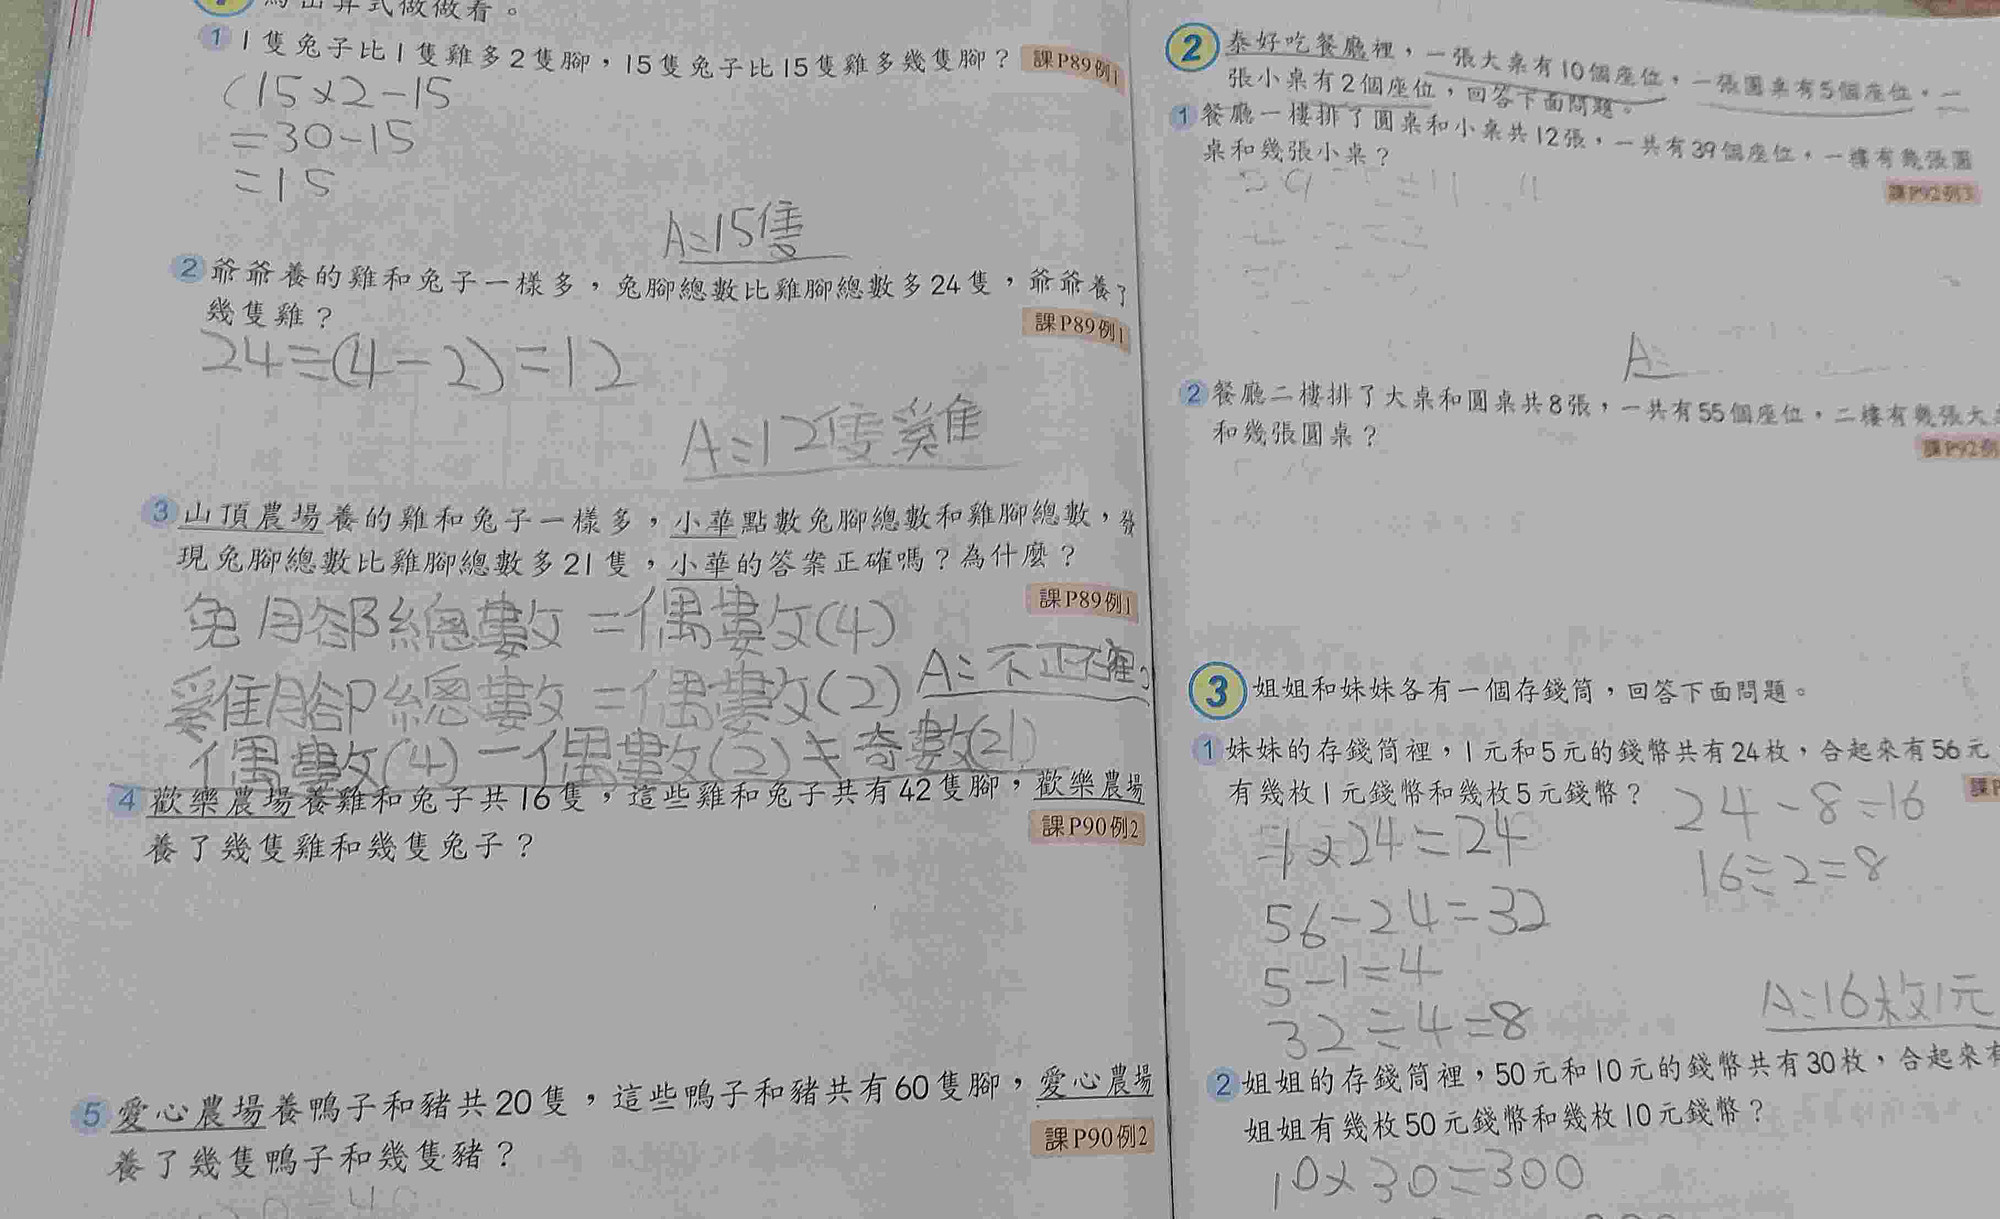 寫出算式做做看。
1 1隻兔子比1隻雞多2隻腳，15隻兔子比15隻雞多幾隻腳？ 課P89例1
(15×2-15
=30-15
=15
A=15隻
2 爺爺養的雞和兔子一樣多，兔腳總數比雞腳總數多24隻，爺爺養了
幾隻雞？ 課P89例1
24÷(4-2)=12
A=12隻雞
3 山頂農場養的雞和兔子一樣多，小華點數兔腳總數和雞腳總數，發
現兔腳總數比雞腳總數多21隻，小華的答案正確嗎？為什麼？
課P89例1
兔腳總數=偶數(4)
雞腳總數=偶數(2) A=不正確
偶數(4)-偶數(2)≠奇數(21)
4 歡樂農場養雞和兔子共16隻，這些雞和兔子共有42隻腳，歡樂農場
養了幾隻雞和幾隻兔子？ 課P90例2
5 愛心農場養鴨子和豬共20隻，這些鴨子和豬共有60隻腳，愛心農場
養了幾隻鴨子和幾隻豬？ 課P90例2
2 泰好吃餐廳裡，一張大桌有10個座位，一張圓桌有5個座位，一
張小桌有2個座位，回答下面問題。
1 餐廳一樓排了圓桌和小桌共12張，一共有39個座位，一樓有幾張圓
桌和幾張小桌？
課P92例3
A=
2 餐廳二樓排了大桌和圓桌共8張，一共有55個座位，二樓有幾張大桌
和幾張圓桌？ 課P92例
3 姐姐和妹妹各有一個存錢筒，回答下面問題。
1 妹妹的存錢筒裡，1元和5元的錢幣共有24枚，合起來有56元
有幾枚1元錢幣和幾枚5元錢幣？ 課P
24-8=16
1×24=24
16÷2=8
56-24=32
5-1=4
32÷4=8
A=16枚1元
2 姐姐的存錢筒裡，50元和10元的錢幣共有30枚，合起來有
姐姐有幾枚50元錢幣和幾枚10元錢幣？
10×30=300